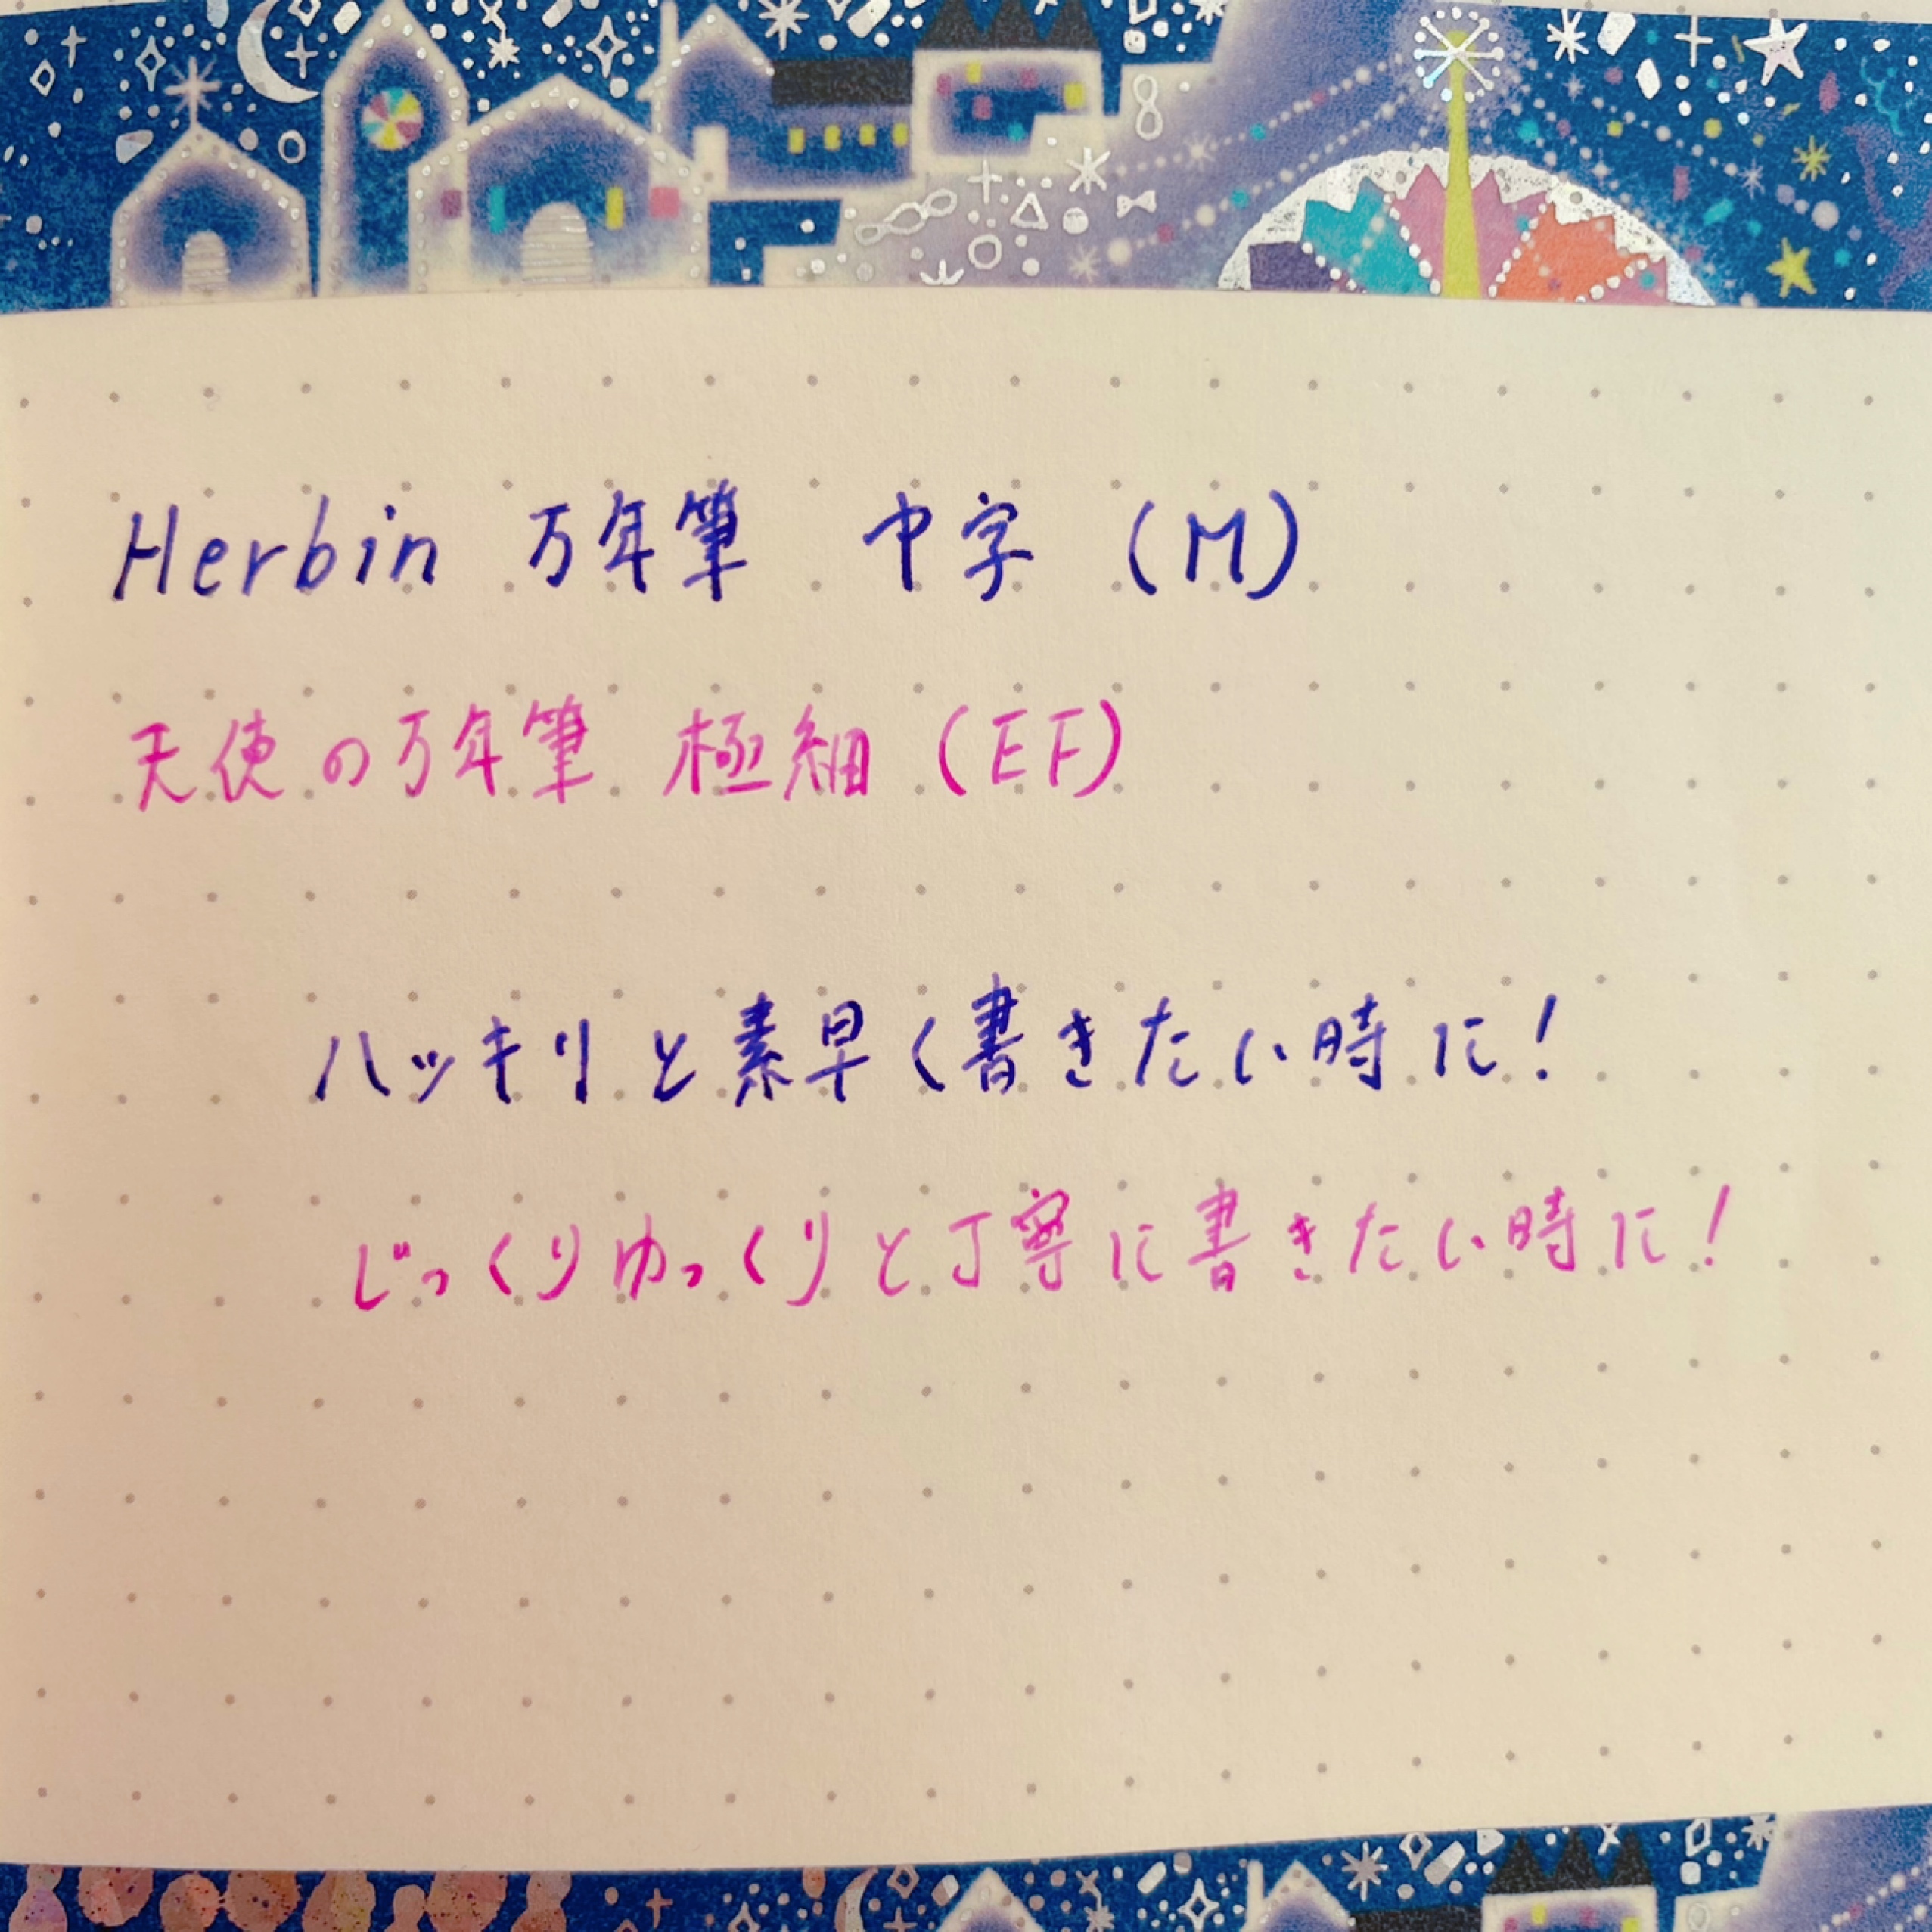 Herbin 万年筆 中字 (M)
天使の万年筆 極細 (EF)
ハッキリと素早く書きたい時に!
じっくりゆっくりと丁寧に書きたい時に!